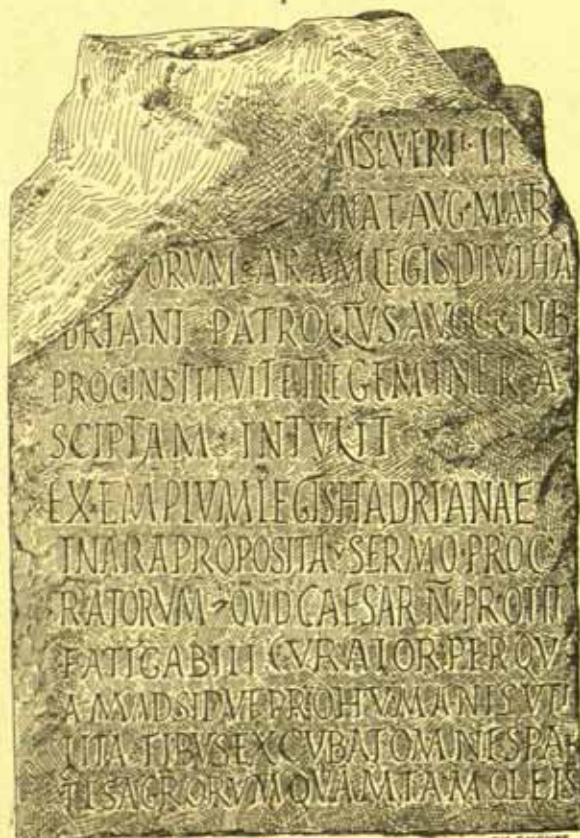 MSEVERI · II
MNAE AVG · MATR
ORVM · ARAM LEGIS DIVI HA
DRIANI PATROCLVS AVGGG LIB
PROC INSTITVIT ET LEGEM INFRA
SCIPTAM INTVLIT
EXEMPLVM LEGIS HADRIANAE
IN ARA PROPOSITA SERMO PROC
RATORVM QVID CAESAR N̄ PRO
FATIGABILI CVRA IOR PER QV
AM ADSIDVE PRO HVMANIS VTI
LITATIBVS EXCVBAT OMNES PA
TIS AGRORVM QVAM TAM OLEIS